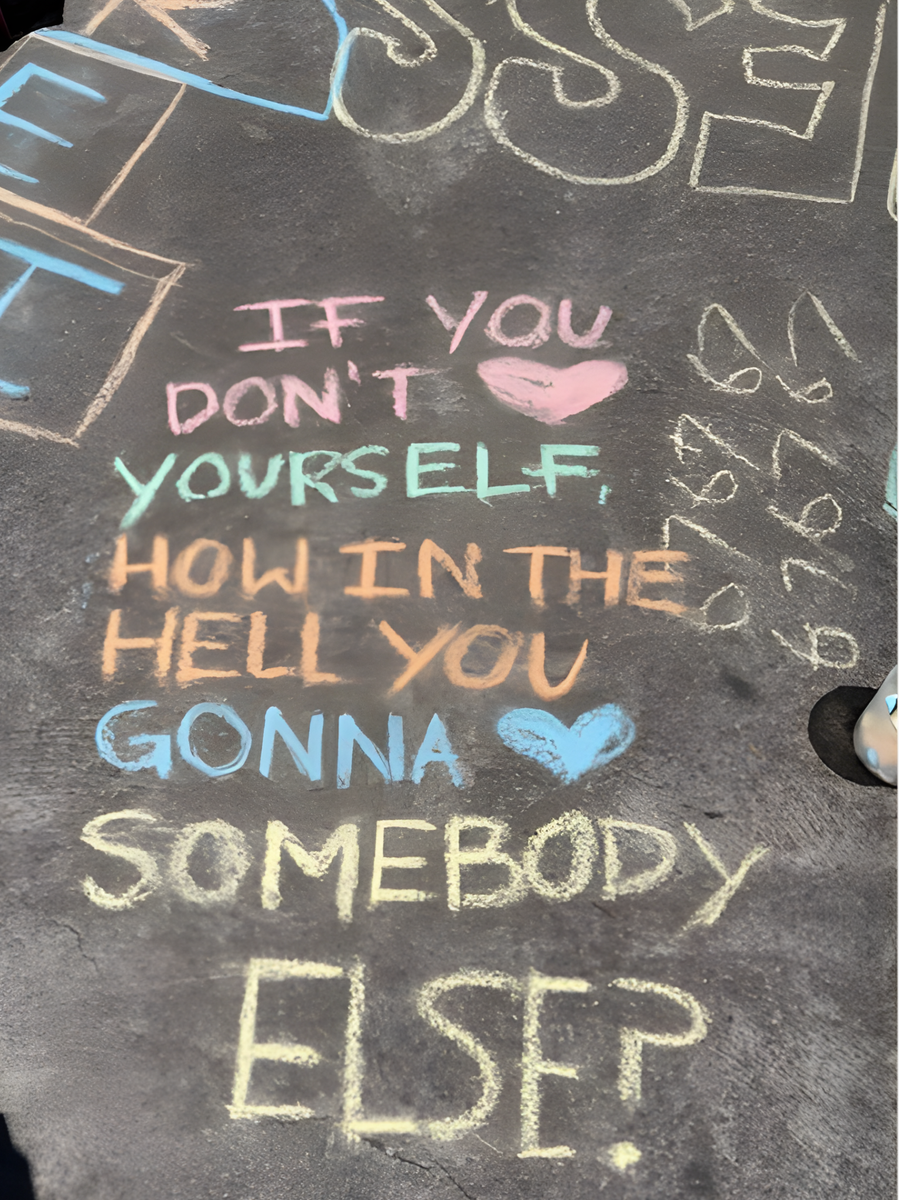 SSE
E
IF YOU
DON'T ♥
YOURSELF,
HOW IN THE
HELL YOU
GONNA ♥
SOMEBODY
ELSE?
67 67
67 67
67 67